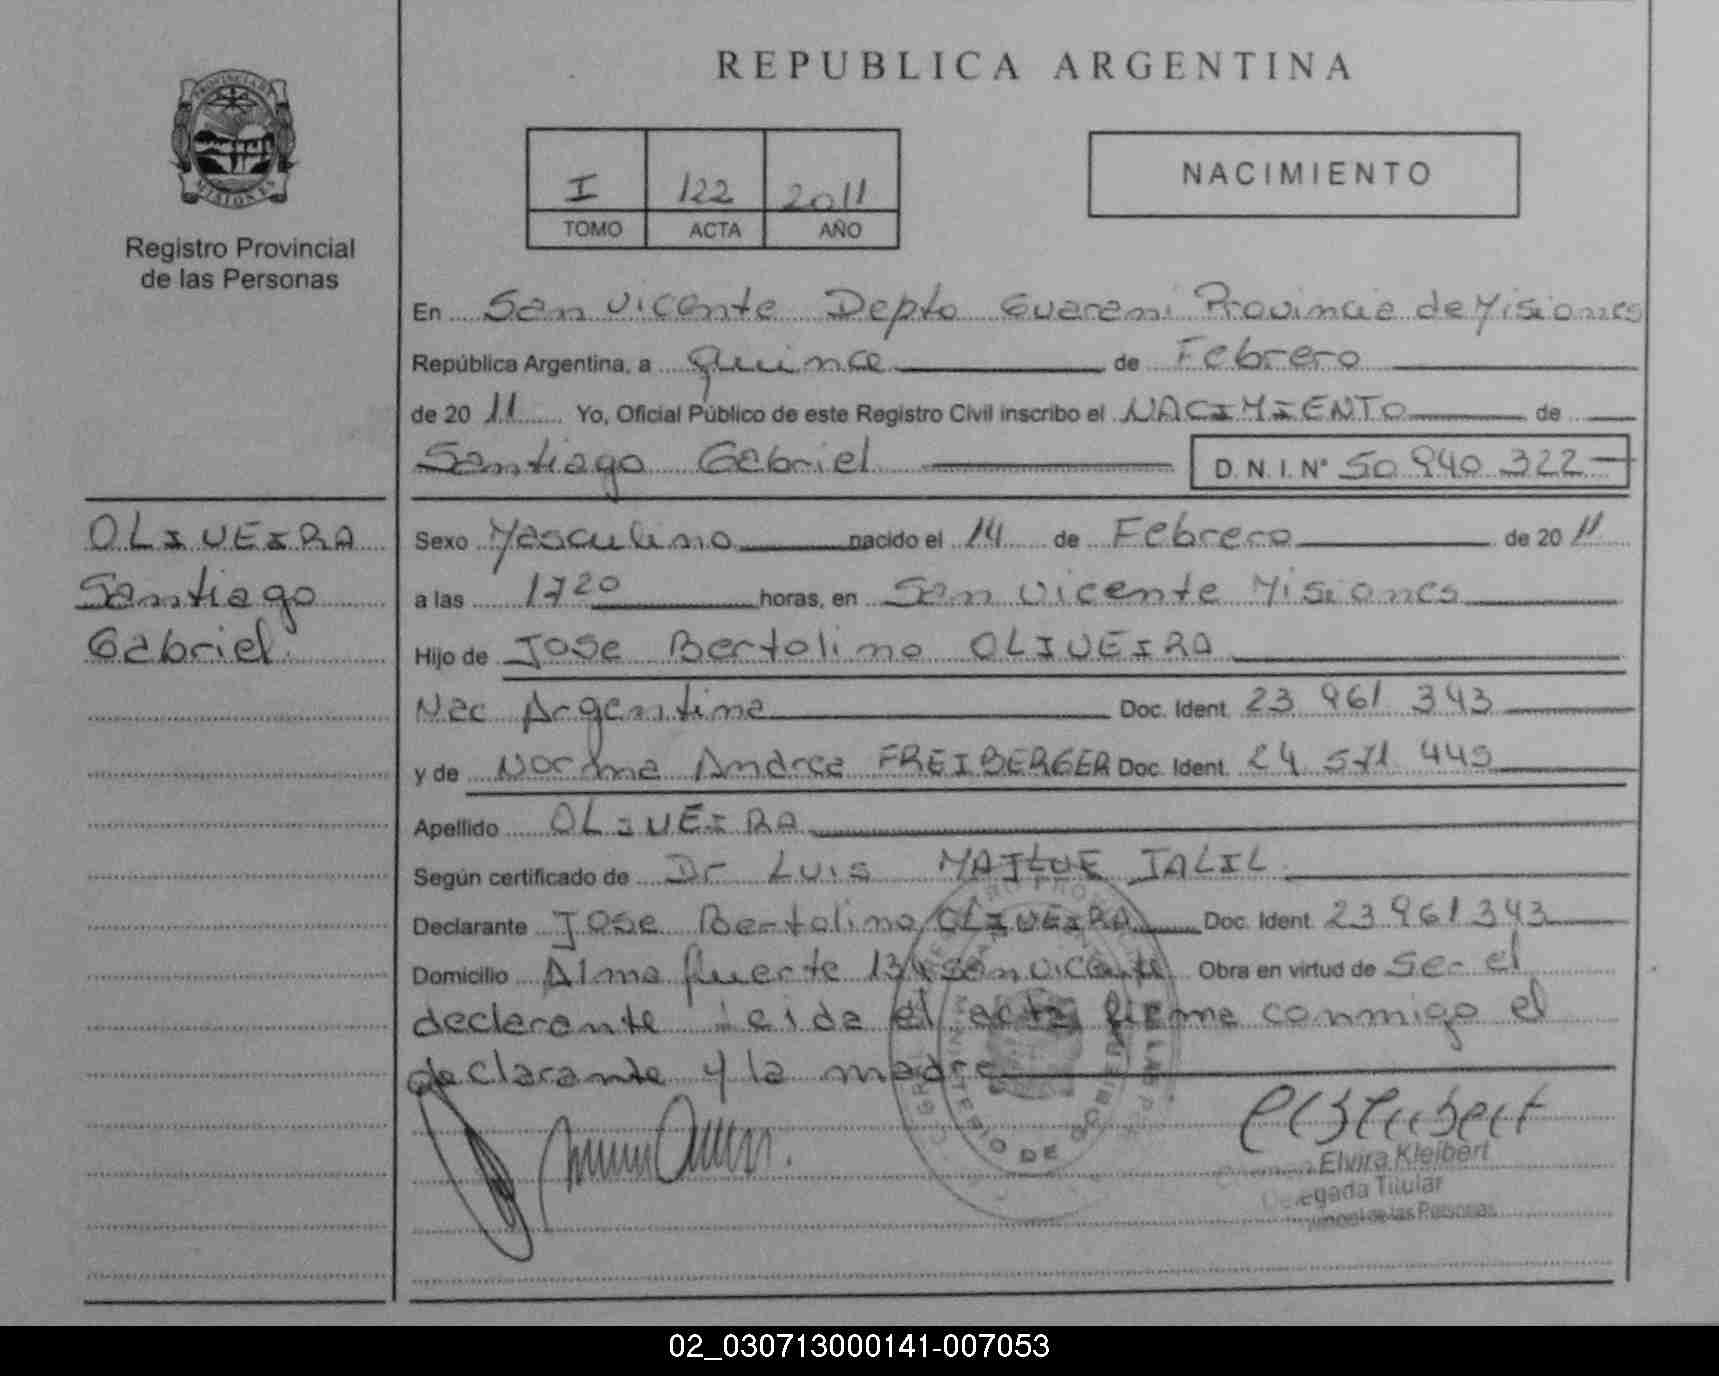 REPUBLICA ARGENTINA
PROVINCIA DE MISIONES
Registro Provincial
de las Personas
I 122 2011
TOMO ACTA AÑO
NACIMIENTO
En San Vicente Depto Guarani Provincia de Misiones
República Argentina, a quince de Febrero
de 20 11 Yo, Oficial Público de este Registro Civil inscribo el NACIMIENTO de
Santiago Gabriel D.N.I. N° 50 940 322
OLIVEIRA
Santiago
Gabriel.
Sexo Masculino nacido el 14 de Febrero de 20 11
a las 17 20 horas, en San Vicente Misiones
Hijo de Jose Bertolino OLIVEIRA
Nac Argentina Doc. Ident. 23 961 343
y de Norma Andrea FREIBERGER Doc. Ident. 24 571 449
Apellido OLIVEIRA
Según certificado de Dr Luis JALIL
Declarante Jose Bertolino OLIVEIRA Doc. Ident. 23 961 343
Domicilio Alma fuerte San Vicente Obra en virtud de Ser el
declarante leida el acta firma conmigo el
declarante y la madre
MINISTERIO DE GOBIERNO
Elvira Kleibert
Delegada Titular
de las Personas
02_030713000141-007053